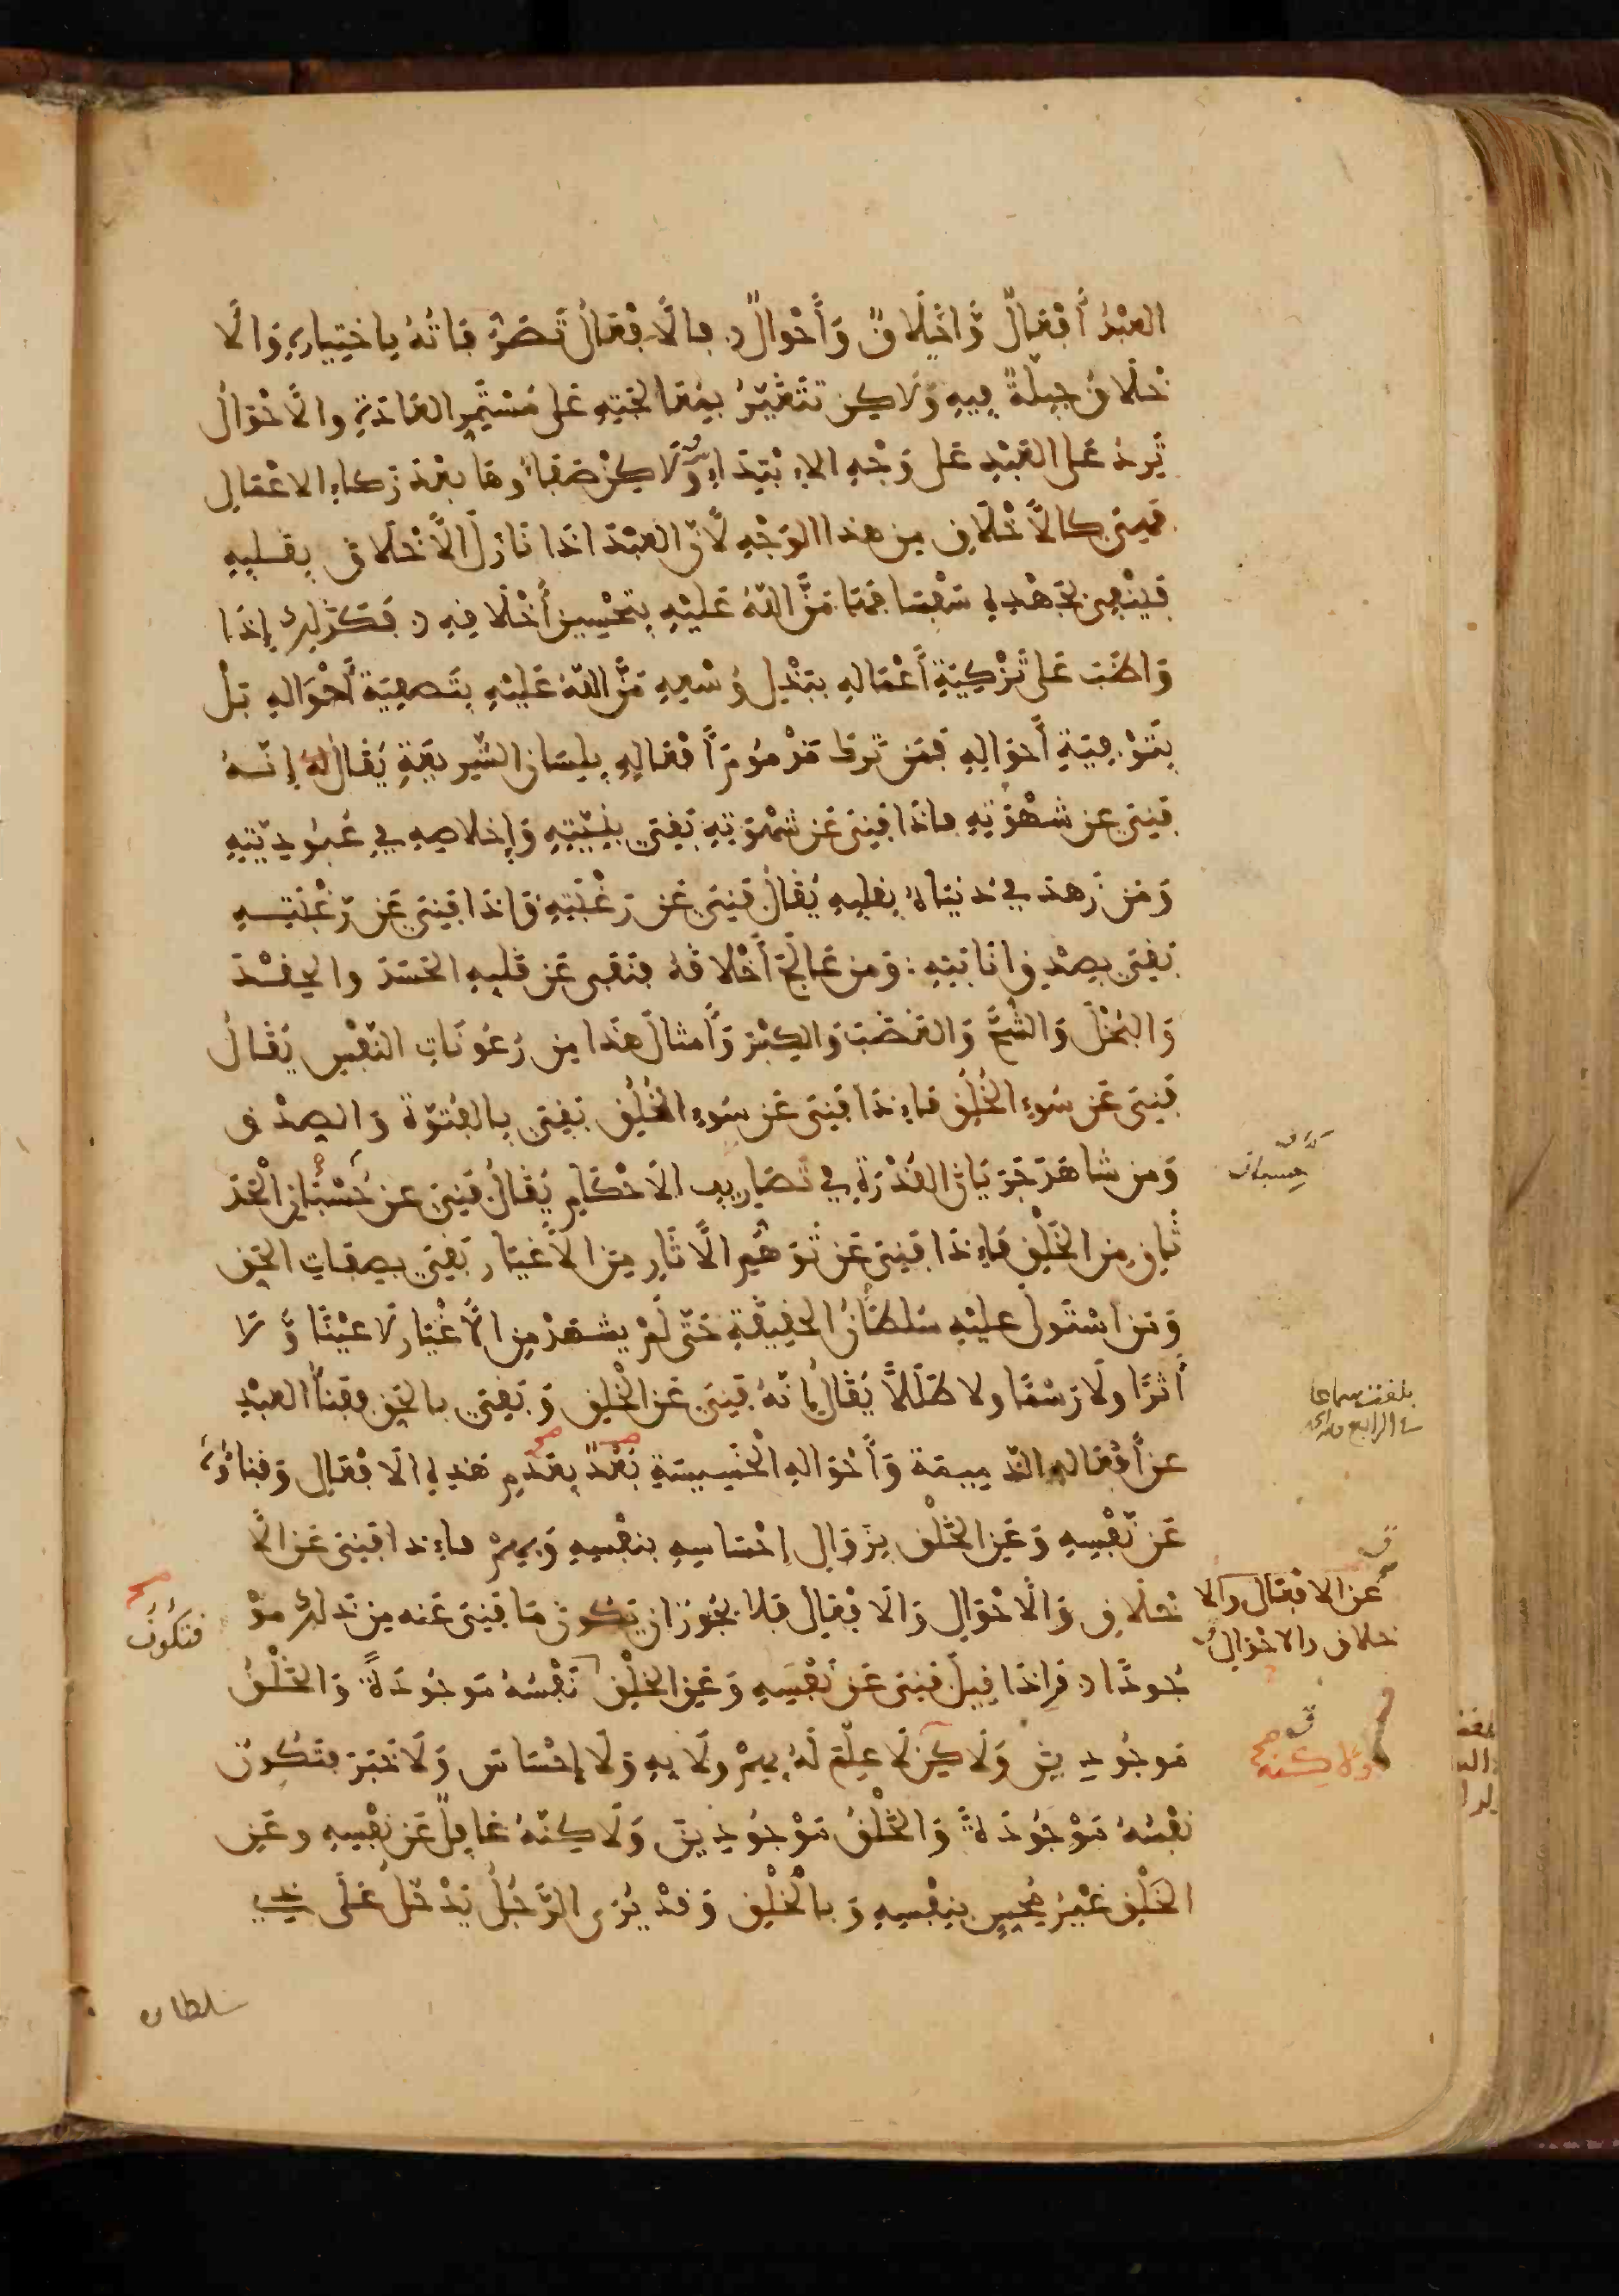 العَبْدُ أَفْعَالٌ وَّأَخْلَاقٌ وَأَحْوَالٌ فالَافْعَالُ تَصَرُّفَاتُهُ بِاخْتِيَارِهِ وَالَا
خْلَاقُ جِبِلَّةٌ فِيهِ وَلَاكِن تَتَغَيَّرُ بِمُعَالَجَتِهِ عَلى مُسْتَمِرِ العَادَةِ وَالَاحْوَالُ
تَرِدُ عَلى العَبْدِ عَلى وَجْهِ الابْتِدَاءِ وَلَاكِنْ صَفَاؤُهَا بَعْدَ زَكَاءِ الاعْمَالِ
فَهِيَ كَالَاخْلَاقِ مِن هَذا الوَجْهِ لَانَّ العَبْدَ اذا نَازَلَ الَاخْلَاقَ بِقَلبِهِ
فَيَنْفِى بِجُهْدِهِ سَفْسَافَهَا مَنَّ اللَّهُ عَلَيْهِ بِتَحْسِينِ أَخْلَاقِهِ فَكَذَلِكَ إِذَا
وَاظَبَ عَلى تَزْكِيَةِ أَعْمَالِهِ بِبَذْلِ وُسْعِهِ مَنَّ اللَّهُ عَلَيْهِ بِتَصفِيَةِ أَحْوَالِهِ بَلْ
بِتَوْفِيَةِ أَحْوَالِهِ فَمَن تَركَ مَذْمُومَ أَفْعَالِهِ بِلِسَانِ الشَّرِيعَةِ يُقَالُ لهُ إِنَّهُ
فَنِىَ عن شَهْوَتِهِ فاذَا فَنِىَ عَن شَهْوَتِهِ بَقِيَ بِنِيَّتِهِ وَإِخلاصِهِ فِي عُبُودِيَّتِهِ
وَمَن زَهدَ فِي دُنيَاهُ بِقَلبِهِ يُقَالُ فَنِىَ عَن رَغْبَتِهِ فَاذا فَنِىَ عَن رَغْبَتِهِ
بَقِيَ بِصِدْقِ انَابَتِهِ وَمن عَالَجَ أَخْلاقَهُ فنَفى عَن قَلبِهِ الحَسَدَ والحِقْدَ
وَالبُخْلَ وَالشُّحَّ وَالغَضَبَ وَالكِبْرَ وَأَمثالَ هَذا مِن رُعُونَاتِ النَّفْسِ يُقَالُ
فَنِىَ عَن سُوءِ الخُلُقِ فاءِذَا فَنِىَ عَن سُوءِ الخُلُقِ بَقِيَ بالفُتُوَّةِ وَالصِدْقِ
وَمن شاهَدَ جَرَيَانَ القُدْرَةِ فِي تَصَارِيفِ الَاحْكَامِ يُقَالُ فَنِىَ عن حُسْبَانِ الْحَدَ
حسبان
ثَانِ مِن الخَلْقِ فَاءِذَا فَنِىَ عَن تَوَهُّمِ الَاثَارِ مِن الَاغيَارِ بَقِيَ بِصِفَاتِ الحَقِ
وَمَن اسْتَولَى عليْهِ سُلطَانُ الحَقِيقَةِ حَتَّى لَمْ يشهَدْ مِن الَاغْيَارِ لَا عيْنًا وَّلَا
أَثَرًا وَلَا رَسْمًا ولا طَلَلًا يُقَالُ إنَّهُ فَنِىَ عَن الْخَلقِ وَبَقِيَ بالحَقِ ففَنَاءُ العبْدِ
بلغت سماعا
عن أَفْعَالِهِ الذَّمِيمَةِ وَأَحْوَالِهِ الْخَسِيسَةِ بَعْدُ بِعَدَمِ هَذِهِ الَافْعَالِ وَفَنَاؤُهُ
صح
عَن نَفْسِهِ وَعَنِ الخَلْقِ بِزَوَالِ إحْسَاسِهِ بِنَفْسِهِ وَبِهِمْ فاءِذا فَنِىَ عَن الَا
خْلَاقِ وَالَاحْوَالِ وَالَافْعَالِ فَلَا يَجُوزُ ان يَكُونَ مَا فَنِىَ عَنه مِن ذَلِكَ مَوْ
عن الافْعَال والا
خلاق والاحْوَالِ
فتكُونُ
جُودًا وَإذَا قِيلَ فَنِىَ عَن نَفْسِهِ وَعَنِ الخَلْقِ نَفْسُهُ مَوجُودَةٌ وَالخَلْقُ
مَوجُودِينَ وَلَاكِن لَا عِلْمَ لَهُ بِهِمْ وَلَا بِهِ وَلَا إِحْسَاسَ وَلَا خَبَرَ فتَكُونُ
ولاكنه
نَفْسُهُ مَوْجُودَةً وَالخَلْقُ مَوْجُودِينَ وَلَاكِنَّهُ غَافِلٌ عَن نَفْسِهِ وعَنِ
الخَلْقِ غَيْرُ مُحِسٍ بِنَفْسِهِ وَبالْخَلْقِ وَقَدْ يُرَى الرَّجُلُ يَدْخُلُ عَلَى ذِي
سلطان